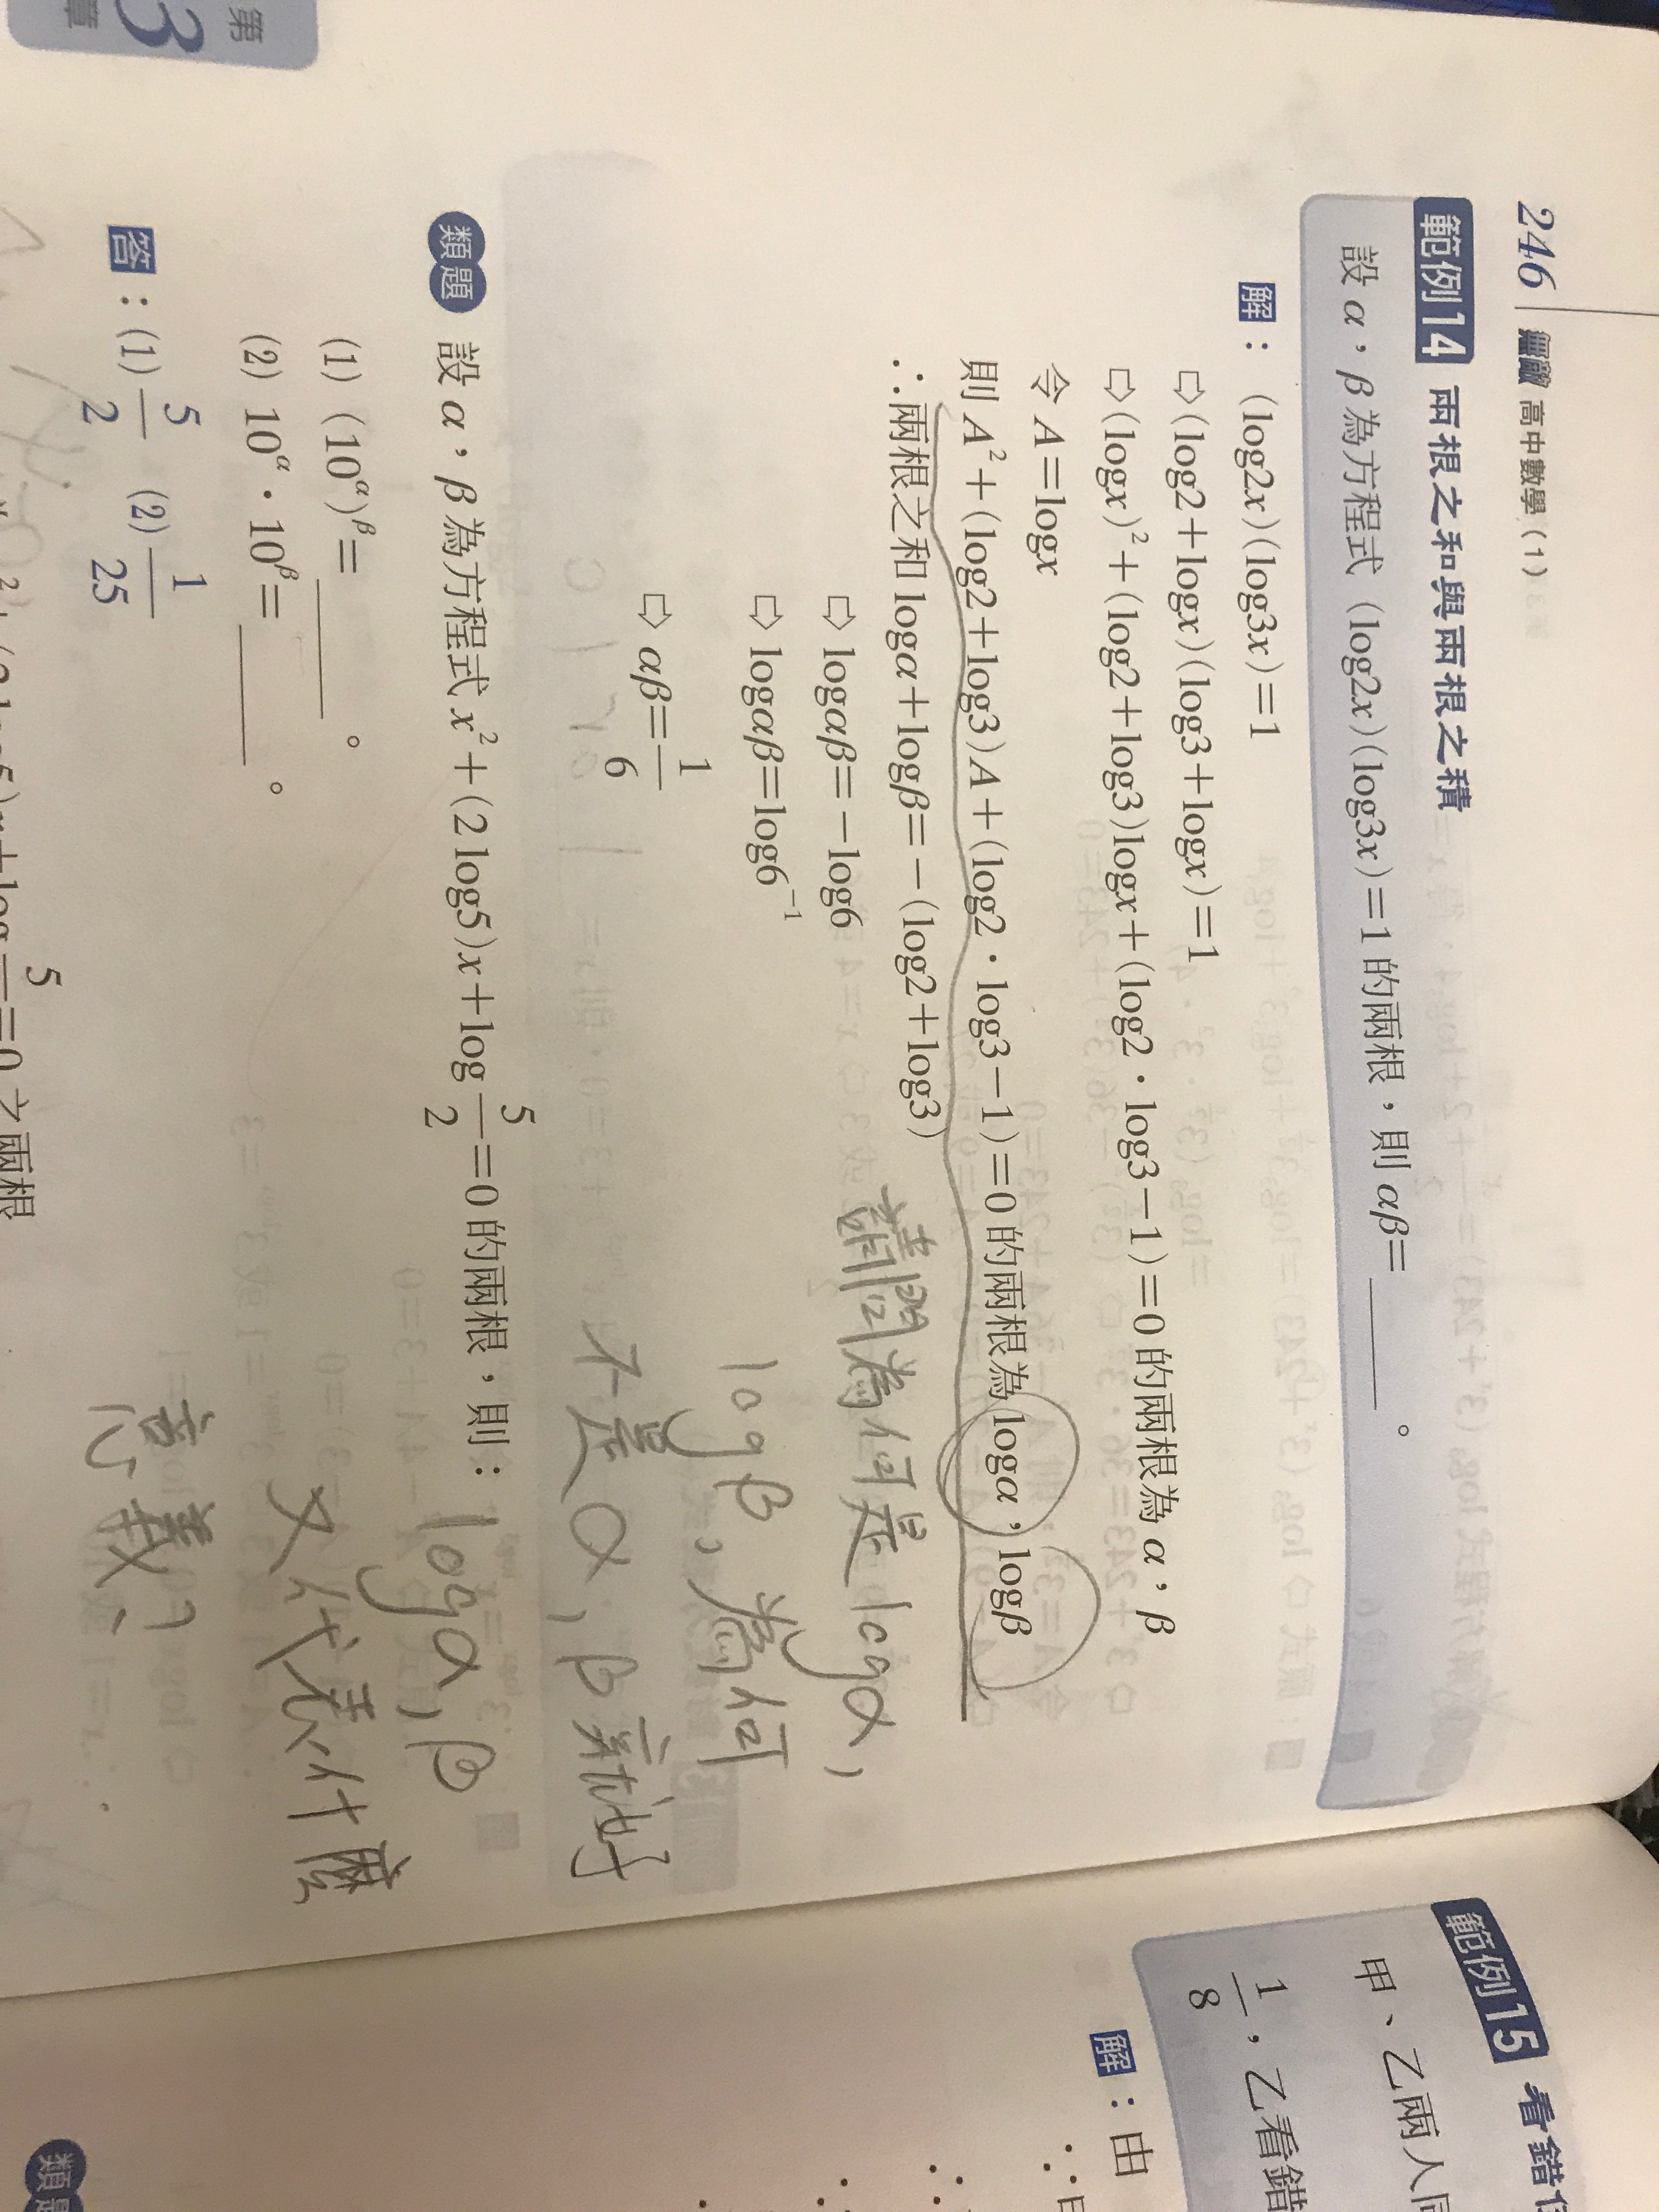 246 無敵 高中數學(1)
範例14 兩根之和與兩根之積
設 α,β 為方程式 (log2x)(log3x)=1 的兩根,則 αβ=______。
解:(log2x)(log3x)=1
⇨(log2+logx)(log3+logx)=1
⇨(logx)²+(log2+log3)logx+(log2・log3-1)=0 的兩根為 α,β
令 A=logx
則 A²+(log2+log3)A+(log2・log3-1)=0 的兩根為 logα,logβ
∴兩根之和 logα+logβ=-(log2+log3)
⇨ logαβ=-log6
⇨ logαβ=log6⁻¹
⇨ αβ=1/6
請問為何是 logα,
logβ,為何
不是 α,β 就好
logα,β
又代表什麼
意義?
類題 設 α,β 為方程式 x²+(2 log5)x+log 5/2=0 的兩根,則:
(1) (10^α)^β=______。
(2) 10^α・10^β=______。
答:(1) 5/2 (2) 1/25
=0 之兩根
第
3
章
範例15 看錯
甲、乙兩人
1/8,乙看錯
解:由
類